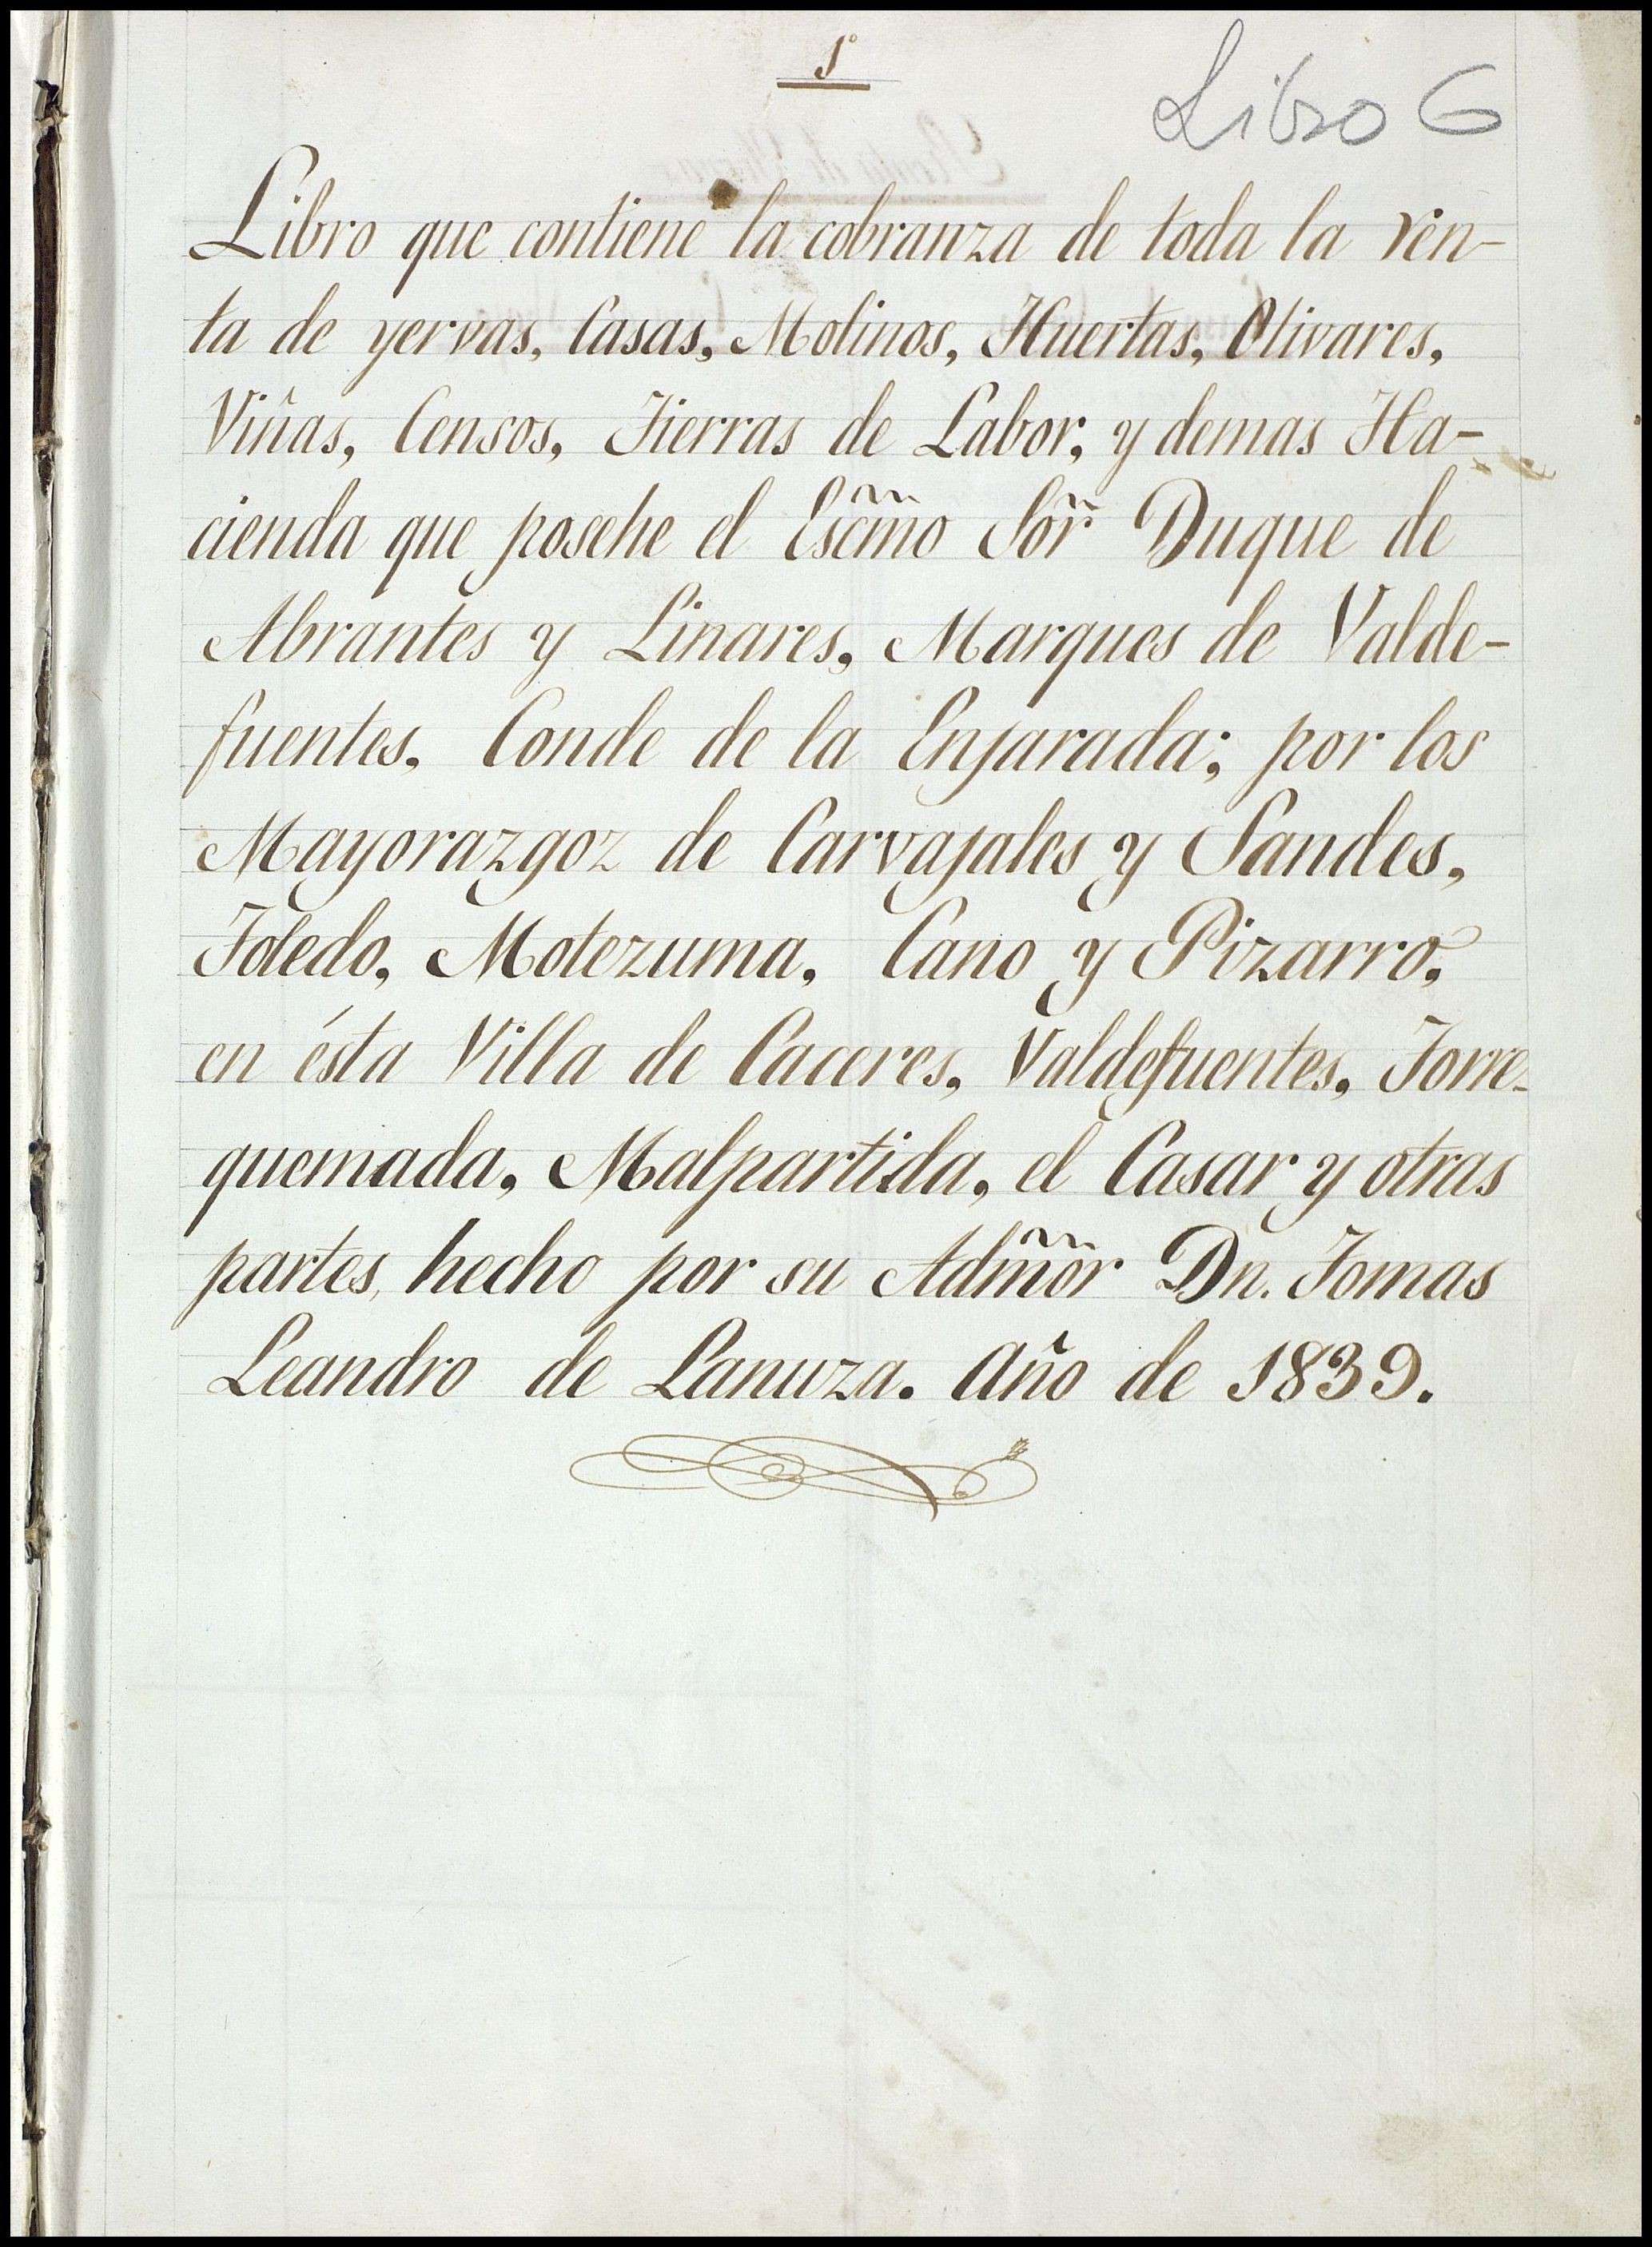 1º
Libro 6
Libro que contiene la cobranza de toda la ren-
ta de yervas, Casas, Molinos, Huertas, Olivares,
Viñas, Censos, Tierras de Labor, y demas Ha-
cienda que posehe el Escm̃o Sor̃ Duque de
Abrantes y Linares, Marques de Valde-
fuentes, Conde de la Enjarada; por los
Mayorazgoz de Carvajales y Sandes,
Toledo, Motezuma, Cano y Pizarro,
en ésta Villa de Caceres, Valdefuentes, Torre-
quemada, Malpartida, el Casar y otras
partes, hecho por su Adm̃or Dn. Tomas
Leandro de Lanuza. Año de 1839.